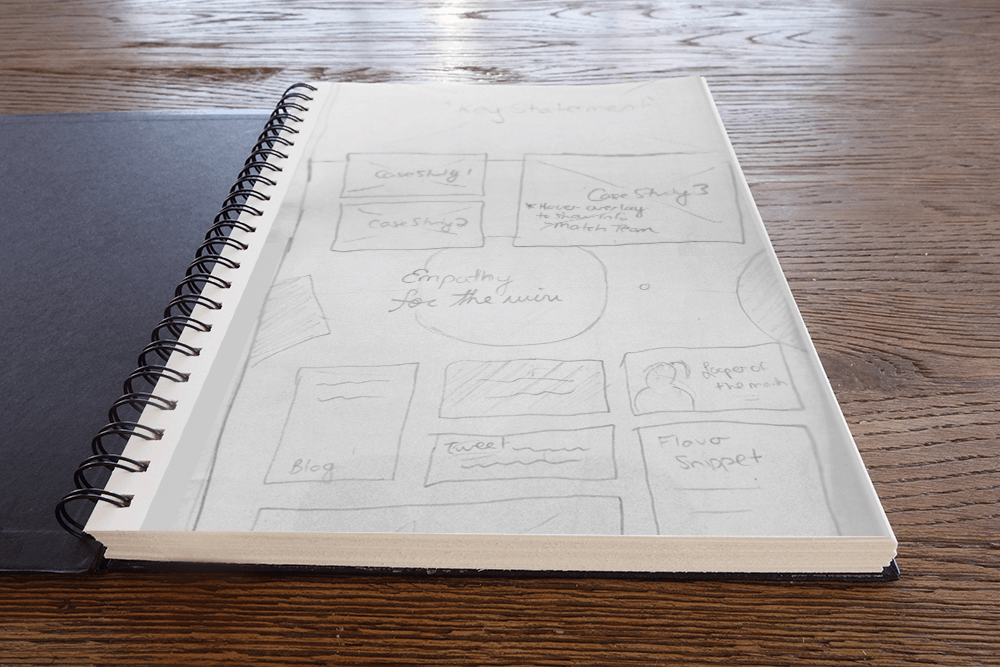 "Key Statement"
Case Study 1
Case Study 2
Case Study 3
*Hover overlay
to show info
>Match Team
Empathy
for the win
Looper of
the month
Blog
Tweet
Flavor
Snippet